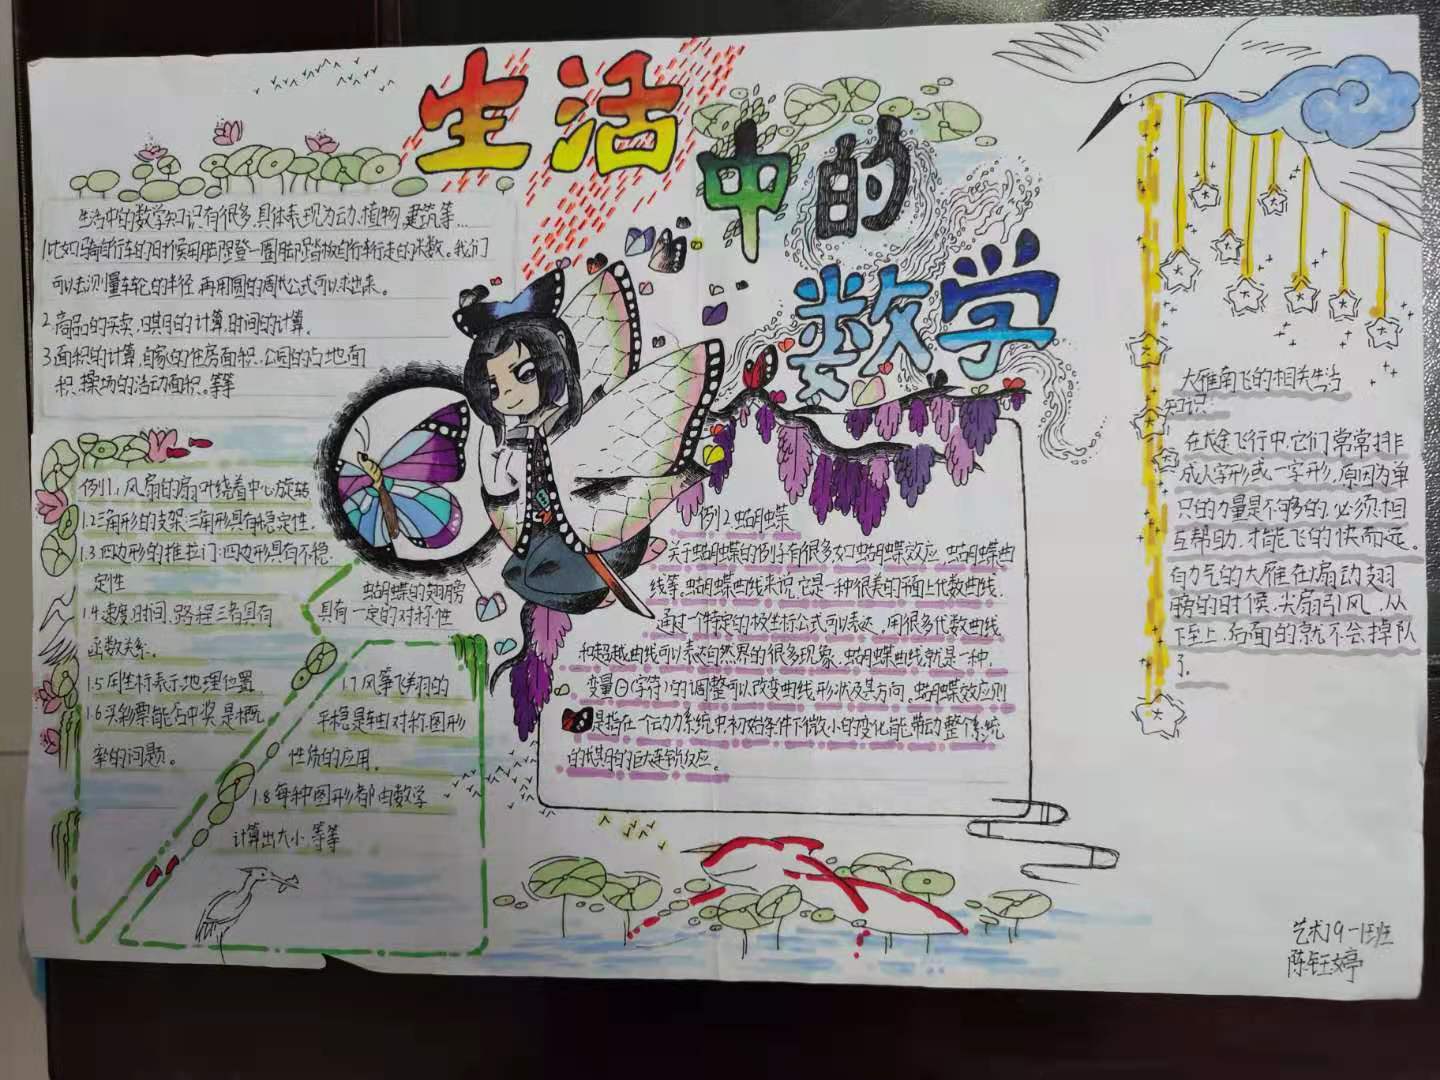 生活中的数学
生活中的数学知识有很多,具体表现为动、植物,建筑等…
1.比如骑自行车的时候用脚蹬登一圈
我们
可以去测量车轮的半径,再用圆的周长公式可以求出来。
2.商品的买卖,日期的计算,时间的计算。
3.面积的计算,自家的住房面积,公园的占地面
积,操场的活动面积。等等
例1.1风扇的扇叶绕着中心旋转
1.2三角形的支架:三角形具有稳定性.
1.3四边形的推拉门:四边形具有不稳
定性
1.4速度,时间,路程三者具有
函数关系.
1.5用坐标表示地理位置
1.6买彩票能否中奖是概
率的问题。
蝴蝶的翅膀
具有一定的对称性
1.7风筝飞翔的
平稳是轴对称图形
性质的应用.
1.8每种图形都由数学
计算出大小,等等
例2.蝴蝶
关于蝴蝶的例子有很多如:蝴蝶效应,蝴蝶曲
线等。蝴蝶曲线来说,它是一种很美的平面上代数曲线.
通过一个特定的极坐标公式可以表达,用很多代数曲线
和超越曲线可以表达自然界的很多现象.蝴蝶曲线就是一种.
变量Θ(字符)的调整可以改变曲线形状及其方向,蝴蝶效应则
是指在一个动力系统中,初始条件下微小的变化能带动整个系统
的长期的巨大连锁反应。
大雁南飞的相关
知识:
在长途飞行中,它们常常排
成人字形或一字形,原因为单
只的力量是不够的,必须相
互帮助,才能飞的快而远。
有力气的大雁在扇动翅
膀的时候,尖扇引风,从
下至上,后面的就不会掉队
了.
艺术19-1班
陈钰婷